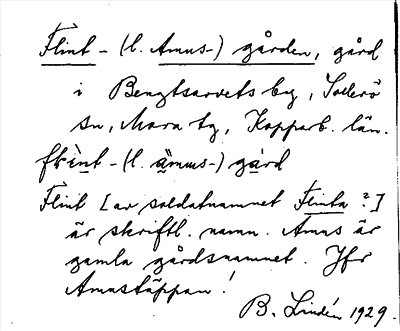 Flint- (l. Amus-) gården, gård
i Bengtsarvets by, Sollerö
sn, Mora tg, Kopparb. län.
flìnt- (l. ä̀mus-) gård
Flint [av soldatnamnet Flinta?]
är skriftl. namn. Amus är
gamla gårdsnamnet. Jfr
Amustäppan!
B. Lindén 1929.